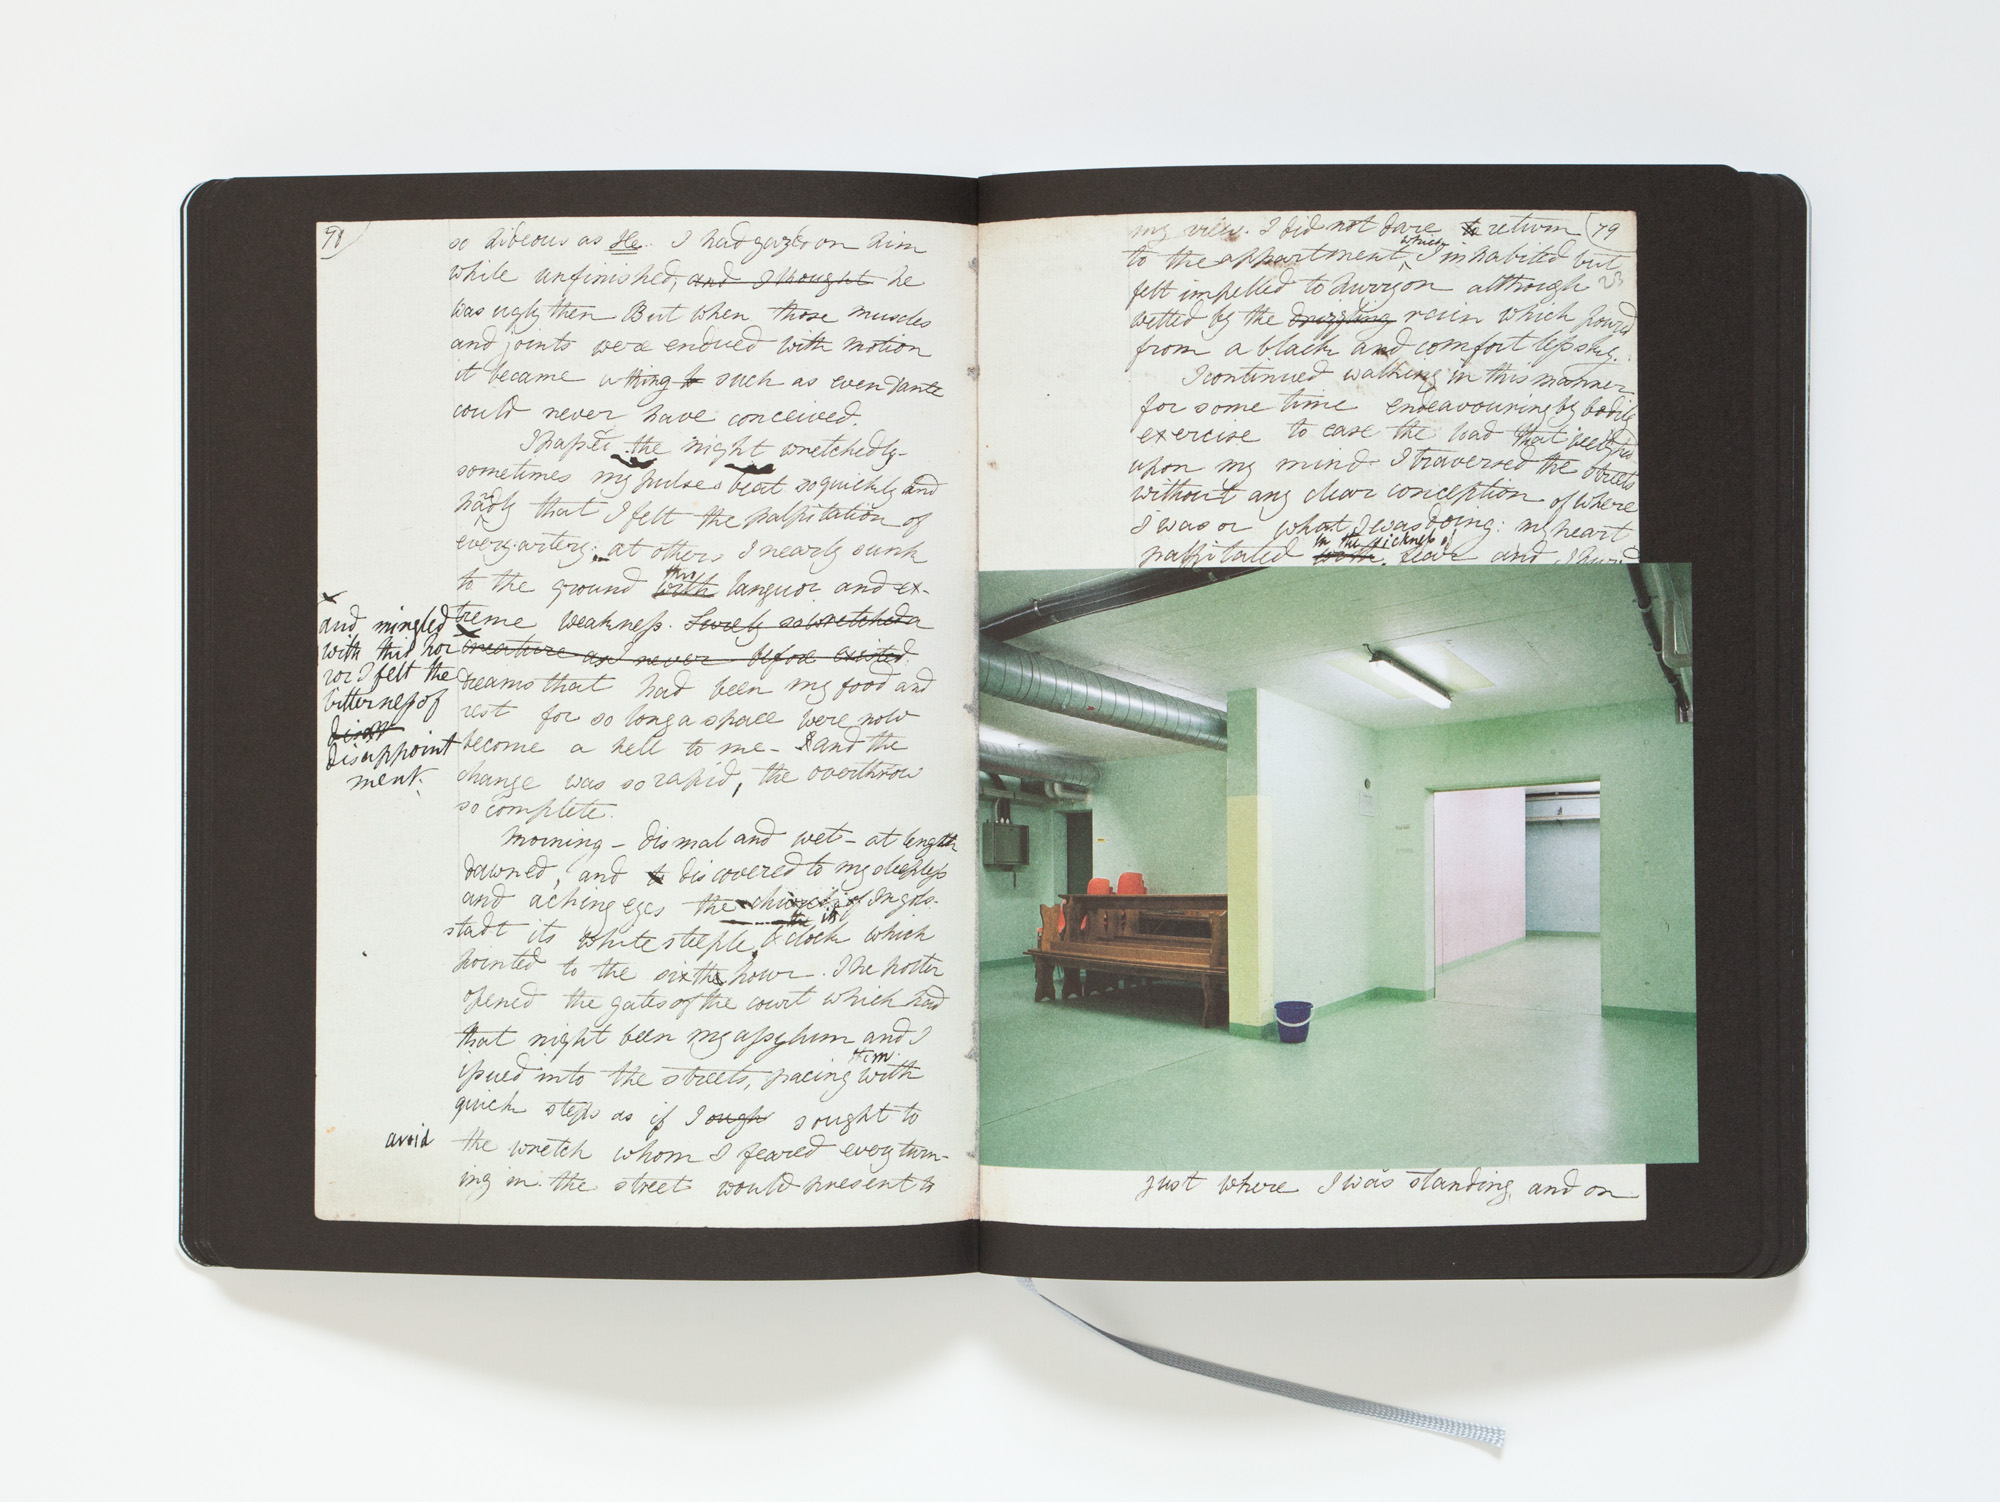 78
so hideous as He. I had gazed on him
while unfinished, and I thought he
was ugly then But when those muscles
and joints were endued with motion
it became a thing such as even Dante
could never have conceived.
I passed the night wretchedly-
sometimes my pulse beat so quickly and
hardly that I felt the palpitation of
every artery; at others I nearly sunk
thro
to the ground with languor and ex-
treme weakness. Surely so wretched a
creature as I never before existed.
x
and mingled
with this hor
ror I felt the
bitterness of
disappoint
ment.
dreams that had been my food and
rest for so long a space were now
become a hell to me - & and the
change was so rapid, the overthrow
so complete.
Morning - dismal and wet - at length
dawned, and to discovered to my sleepless
and aching eyes the church of Ingols-
the its
stadt its white steeple & clock which
pointed to the sixth hour. The porter
opened the gates of the court which had
that night been my assylum and I
them
issued into the streets, pacing with
quick steps as if I sought to
avoid the wretch whom I feared every turn-
ing in the street would present to
79
my view. I did not dare to return
which
to the appartment I inhabited but
felt impelled to hurry on although
wetted by the drizzling rain which poured
from a black and comfortless sky.
I continued walking in this manner
for some time endeavouring by bodily
exercise to ease the load that weighed
upon my mind. I traversed the streets
without any clear conception of where
I was or what I was doing: my heart
in the sickness of
palpitated with fear and I hurried
just where I was standing, and on